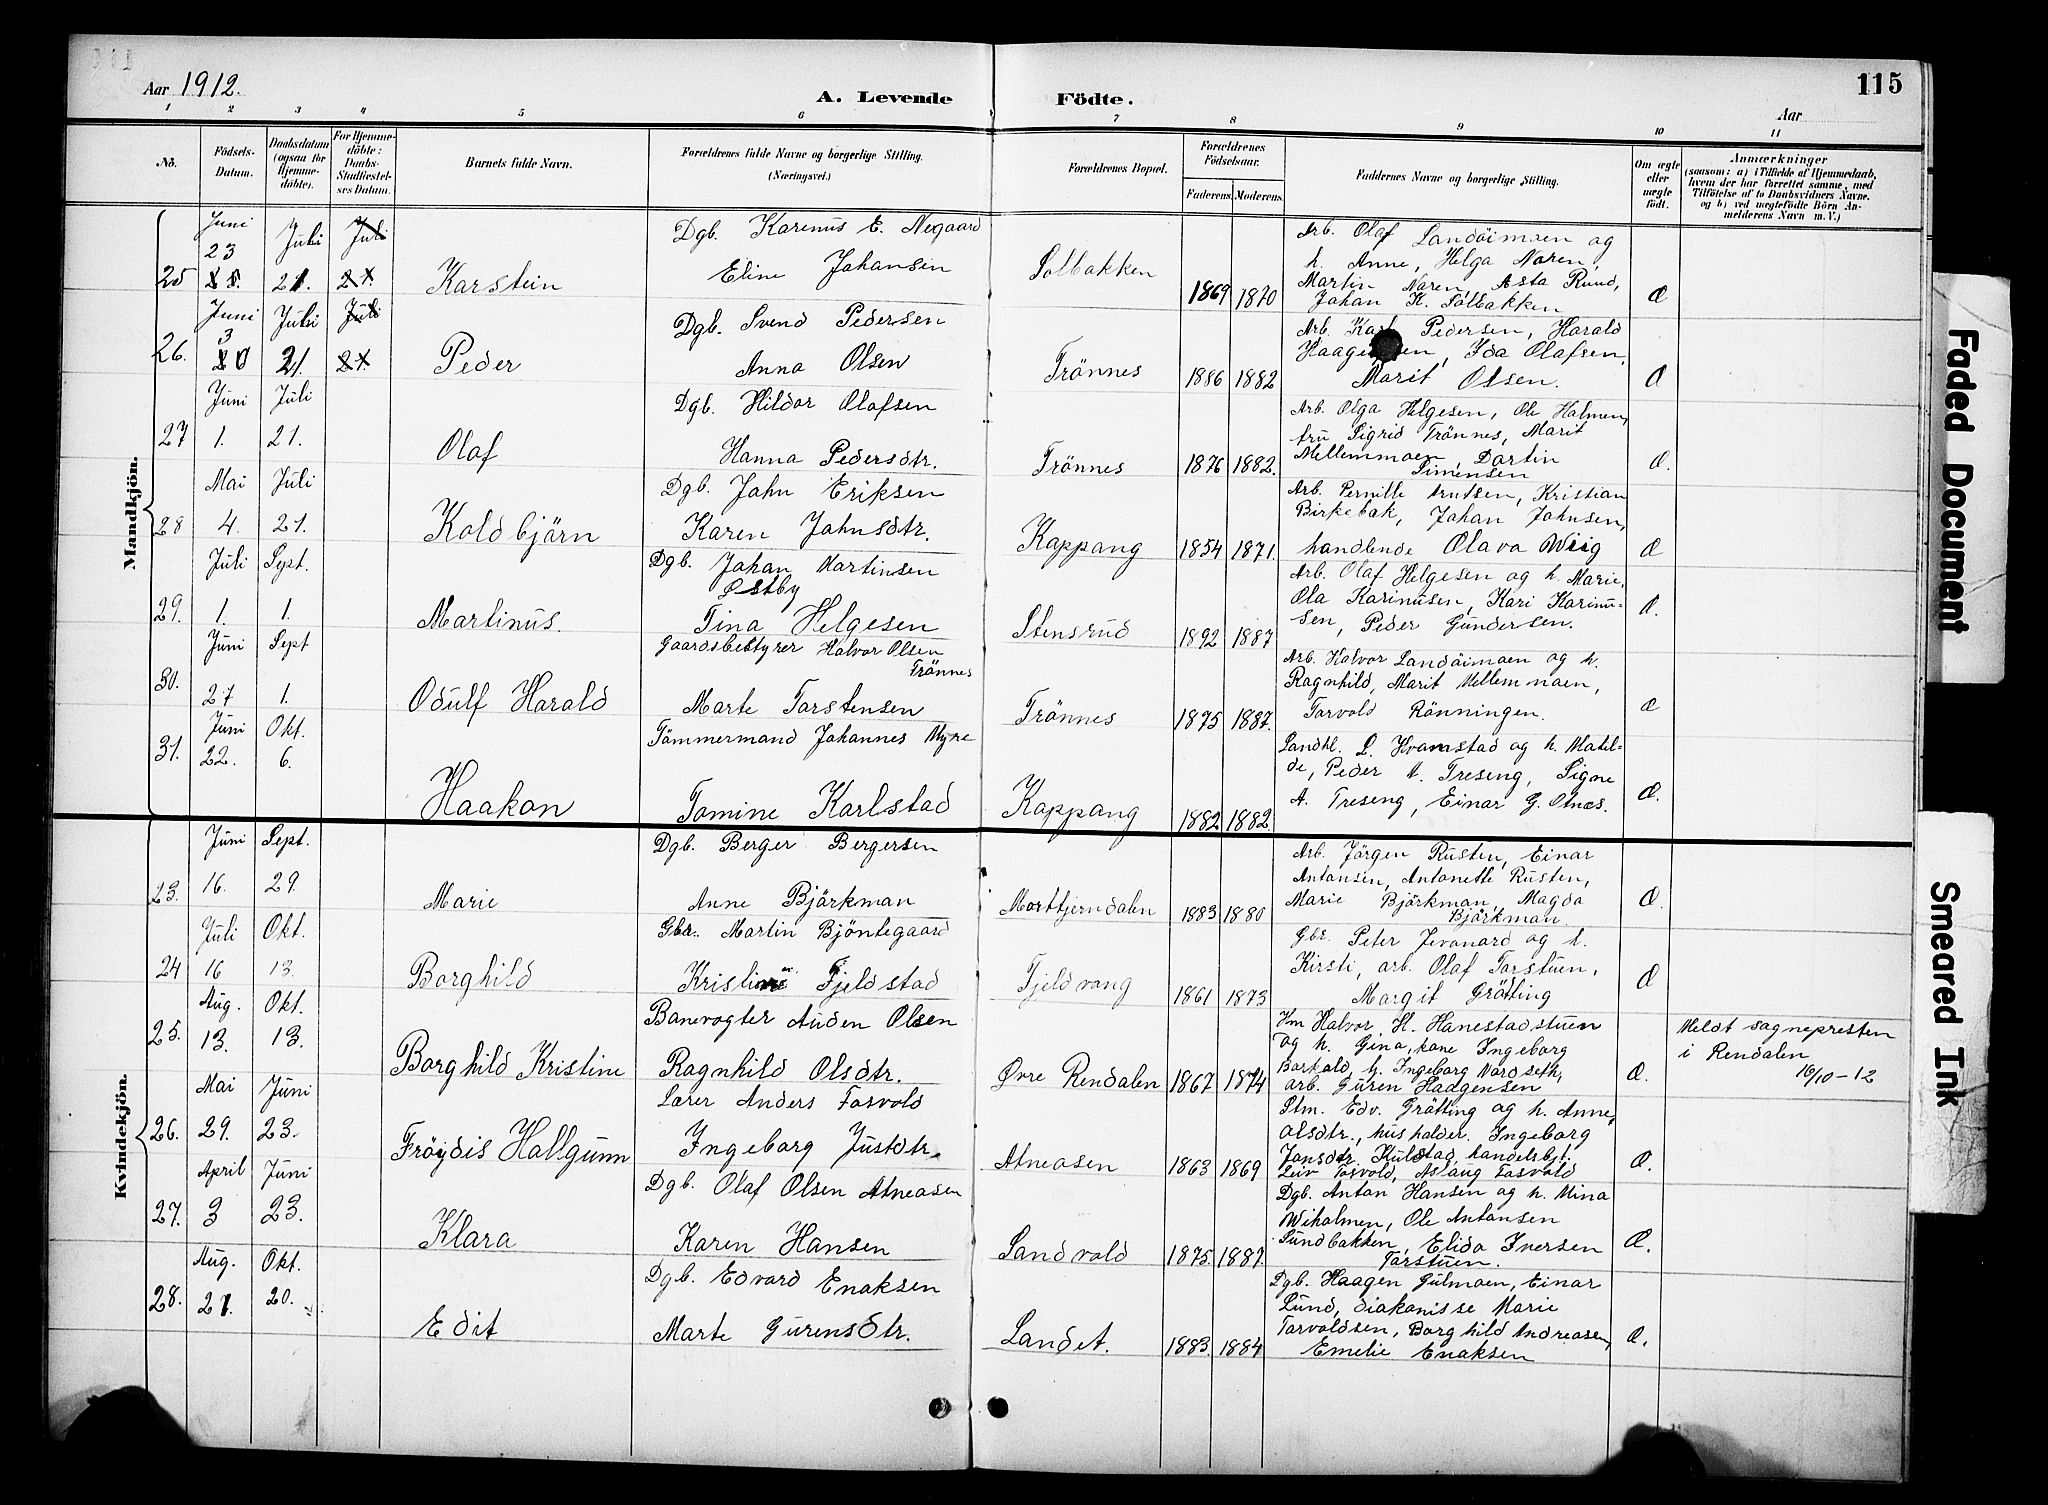 115
Aar 1912.
A. Levende Födte.
Aar
1 2 3 4 5 6 7 8 9 10 11
No.
Födsels-Datum.
Daabsdatum (ogsaa for Hjemmedöbte).
For Hjemmedöbte: Daabs-Stadfæstelses Datum.
Barnets fulde Navn.
Forældrenes fulde Navne og borgerlige Stilling.
(Næringsvei.)
Forældrenes Bopæl.
Forældrenes Födselsaar.
Faderens. Moderens.
Faddernes Navne og borgerlige Stilling.
Om ægte eller uægte födt.
Anmærkninger
(saasom: a) i Tilfælde af Hjemmedaab, hvem der har forrettet samme, med Tilföielse af to Daabsvidners Navne. og b) ved uægtefödte Börn Anmelderens Navn m. V.)
Mandkjön.
25 Juni 23 Juli 21. Juli 21. Karstein
Dgb. Karenus E. Negaard
Eline Johansen
Solbakken 1869 1870
Arb. Olaf Landöimoen og
h. Anne, Helga Noren,
Martin Noren, Asta Ruud,
Johan K. Solbakken
Æ
26. Juni 3 Juli 21. Juli 21. Peder
Dgb. Svend Pedersen
Anna Olsen
Trönnes 1886 1882
Arb. Karl Pedersen, Harald
Haagensen, Ida Olafsen,
Marit Olsen.
Æ
27 Juni 1. Juli 21. Olaf
Dgb. Hildor Olafsen
Hanna Pedersdtr.
Trönnes 1876 1882.
Arb. Olga Helgesen, Ole Holmen,
fru Sigrid Trönnes, Marit
Mellemmoen, Dortin
Simensen
Æ.
28 Mai 4. Juli 21. Koldbjörn
Dgb. John Eriksen
Karen Johnsdtr.
Koppang 1854 1871.
Arb. Pernille Knutsen, Kristian
Birkebak, Johan Johnsen,
handlende Olava Wiig
Æ
29. Juli 1. Sept. 1. Martinus.
Dgb. Johan Martinsen
Østby
Tina Helgesen
Stensrud 1892 1887
Arb. Olaf Helgesen og h. Marie,
Ola Karinusen, Kari Karinu-
sen, Peder Gundersen.
Æ.
30. Juni 27 Sept 1. Odulf Harald
Gaardsbestyrer Halvor Olsen
Trönnes
Marte Torstensen
Trönnes 1875 1887.
Arb. Halvor Landöimoen og h.
Ragnhild, Marit Mellemmoen,
Torvold Rönningen.
Æ
31. Juni 22. Okt. 6. Haakon
Tömmermand Johannes Myre
Tomine Karlstad
Koppang 1882 1882.
Landhl. L. Kvarnstad og h. Matil-
de, Peder A. Treseng, Signe
A. Treseng, Einar G. Otnes.
Æ.
Kvindekjön.
23. Juni 16. Sept. 29. Marie
Dgb. Berger Bergersen
Anne Björkman
Morttjerndalen 1883 1880
Arb. Jörgen Rusten, Einar
Antonsen, Antonette Rusten,
Marie Björkman, Magda
Björkman.
Æ.
24 Juli 16 Okt. 13. Borghild
Gbr. Martin Bjöntegaard
Kristine Fjeldstad
Fjeldvang 1861 1873
Gbr. Peter Jevanord og h.
Kirsti, arb. Olaf Torstuen,
Margit Grötting
Æ
25. Aug. 13. Okt. 13. Borghild Kristine
Banevogter Auden Olsen
Ragnhild Olsdtr.
Øvre Rendalen 1867 1874
Km Halvor H. Hanestadstuen
og h. Gina, kone Ingeborg
Barkald, h. Ingeborg Nordseth,
arb. Guren Haagensen
Æ.
Meldt sognepresten
i Rendalen
16/10-12
26. Mai 29. Juni 23. Fröydis Hallgunn
Lærer Anders Fosvold
Ingeborg Justdtr.
Atneosen 1863 1869
Stm. Edv. Grötting og h. Anne
Olsdtr., husholder. Ingeborg
Jonsdtr Kulstad, handelsbet.
Leiv Fosvold, Aslaug Fosvold
Æ.
27. April 3 Juni 23. Klara
Dgb. Olaf Olsen Atneosen
Karen Hansen
Sandvold 1875. 1887.
Dgb. Anton Hansen og h. Mina
Wiholmen, Ole Antonsen
Sundbakken, Elida Iversen
Torstuen.
Æ.
28. Aug. 21. Okt. 20. Edit
Dgb. Edvard Enoksen
Marte Gurensdtr.
Landet. 1883. 1884
Dgb. Haagen Gulmoen, Einar
Lund, diakonisse Marie
Torvoldsen, Borghild Andreasen,
Emelie Enoksen
Æ.
Faded Document
Smeared Ink